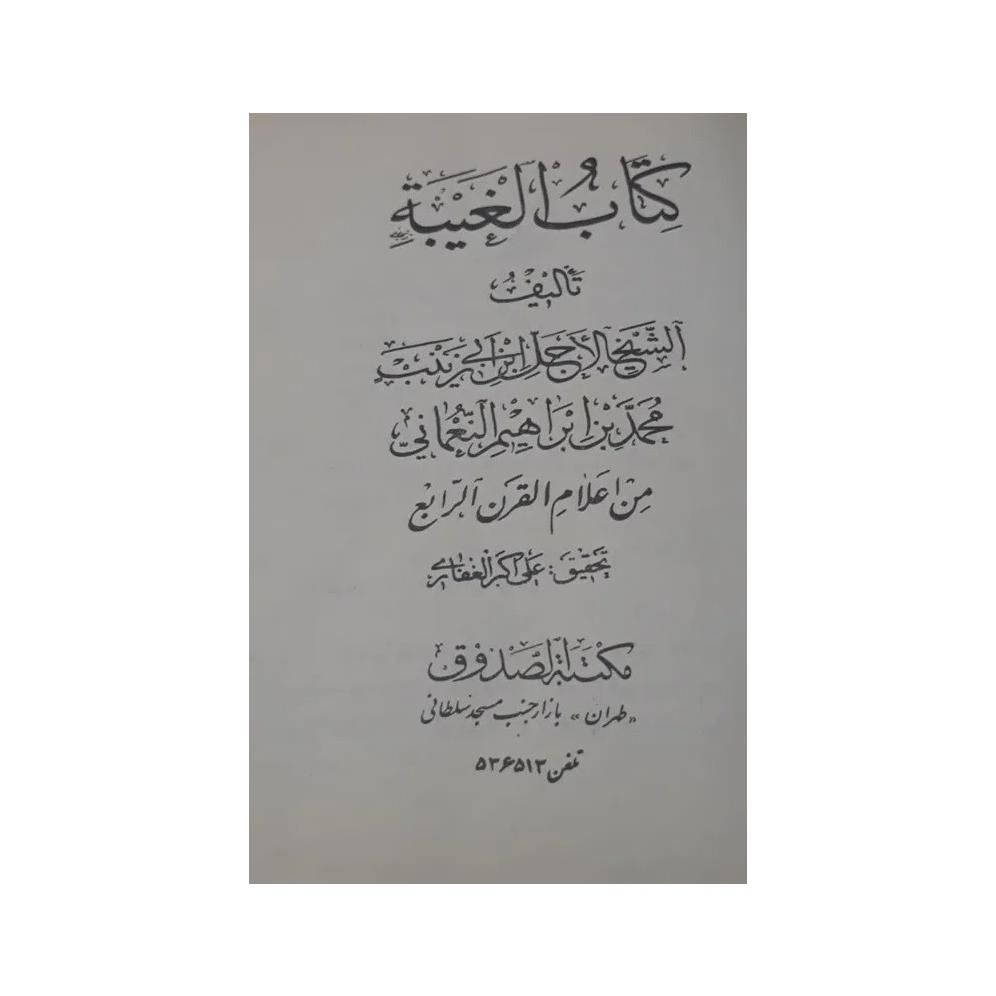 كِتَابُ الْغَيْبَةِ
تَأْلِيْفُ
اَلشَّيْخِ الْأَجَلِّ ابْنِ اَبِي زَيْنَبَ
مُحَمَّدِ بْنِ اِبْرَاهِيْمِ النُّعْمَانِيِّ
مِنْ اَعْلَامِ الْقَرْنِ اَلرَّابِعْ
تَحْقِيْق: عَلى اَكبَر الْغَفّارى
مَكْتَبَةُ الصَّدُوْقِ
«طهران» بازار جنب مسجد سلطانی
تلفن ۵۳۶۵۱۳